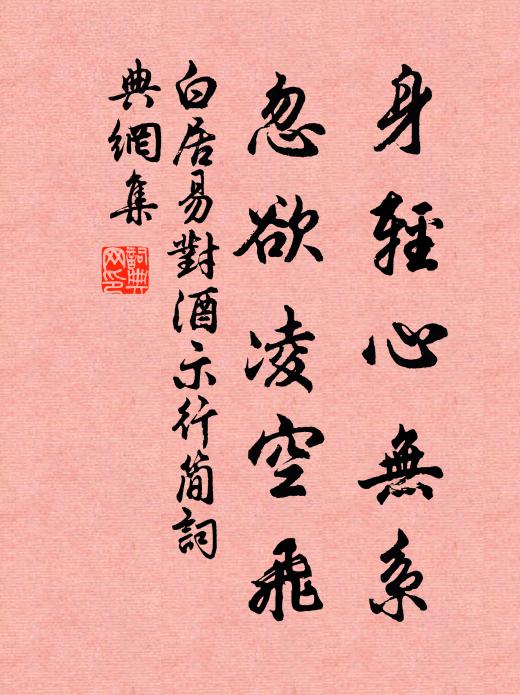 身輕心無系
忽欲凌空飛
白居易對酒示行簡詞
典網集
詞典
网印